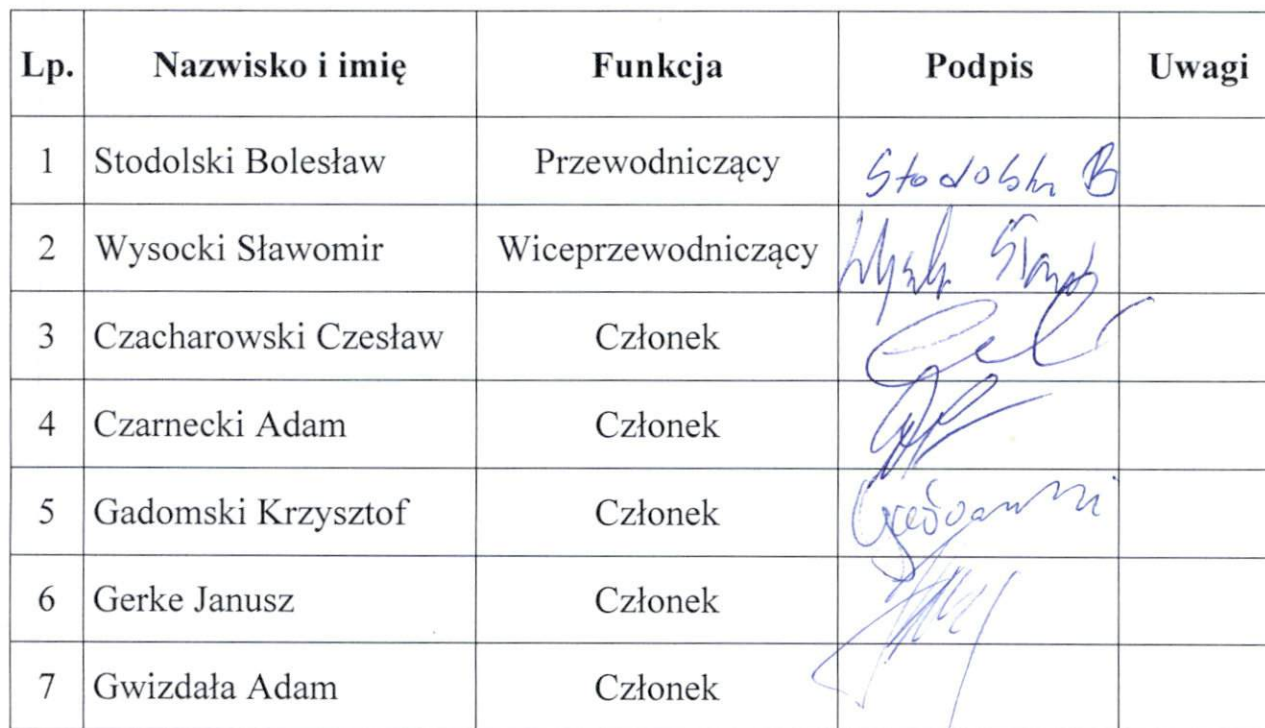 Lp. Nazwisko i imię Funkcja Podpis Uwagi
1 Stodolski Bolesław Przewodniczący Stodolski B
2 Wysocki Sławomir Wiceprzewodniczący
3 Czacharowski Czesław Członek
4 Czarnecki Adam Członek
5 Gadomski Krzysztof Członek
6 Gerke Janusz Członek
7 Gwizdała Adam Członek